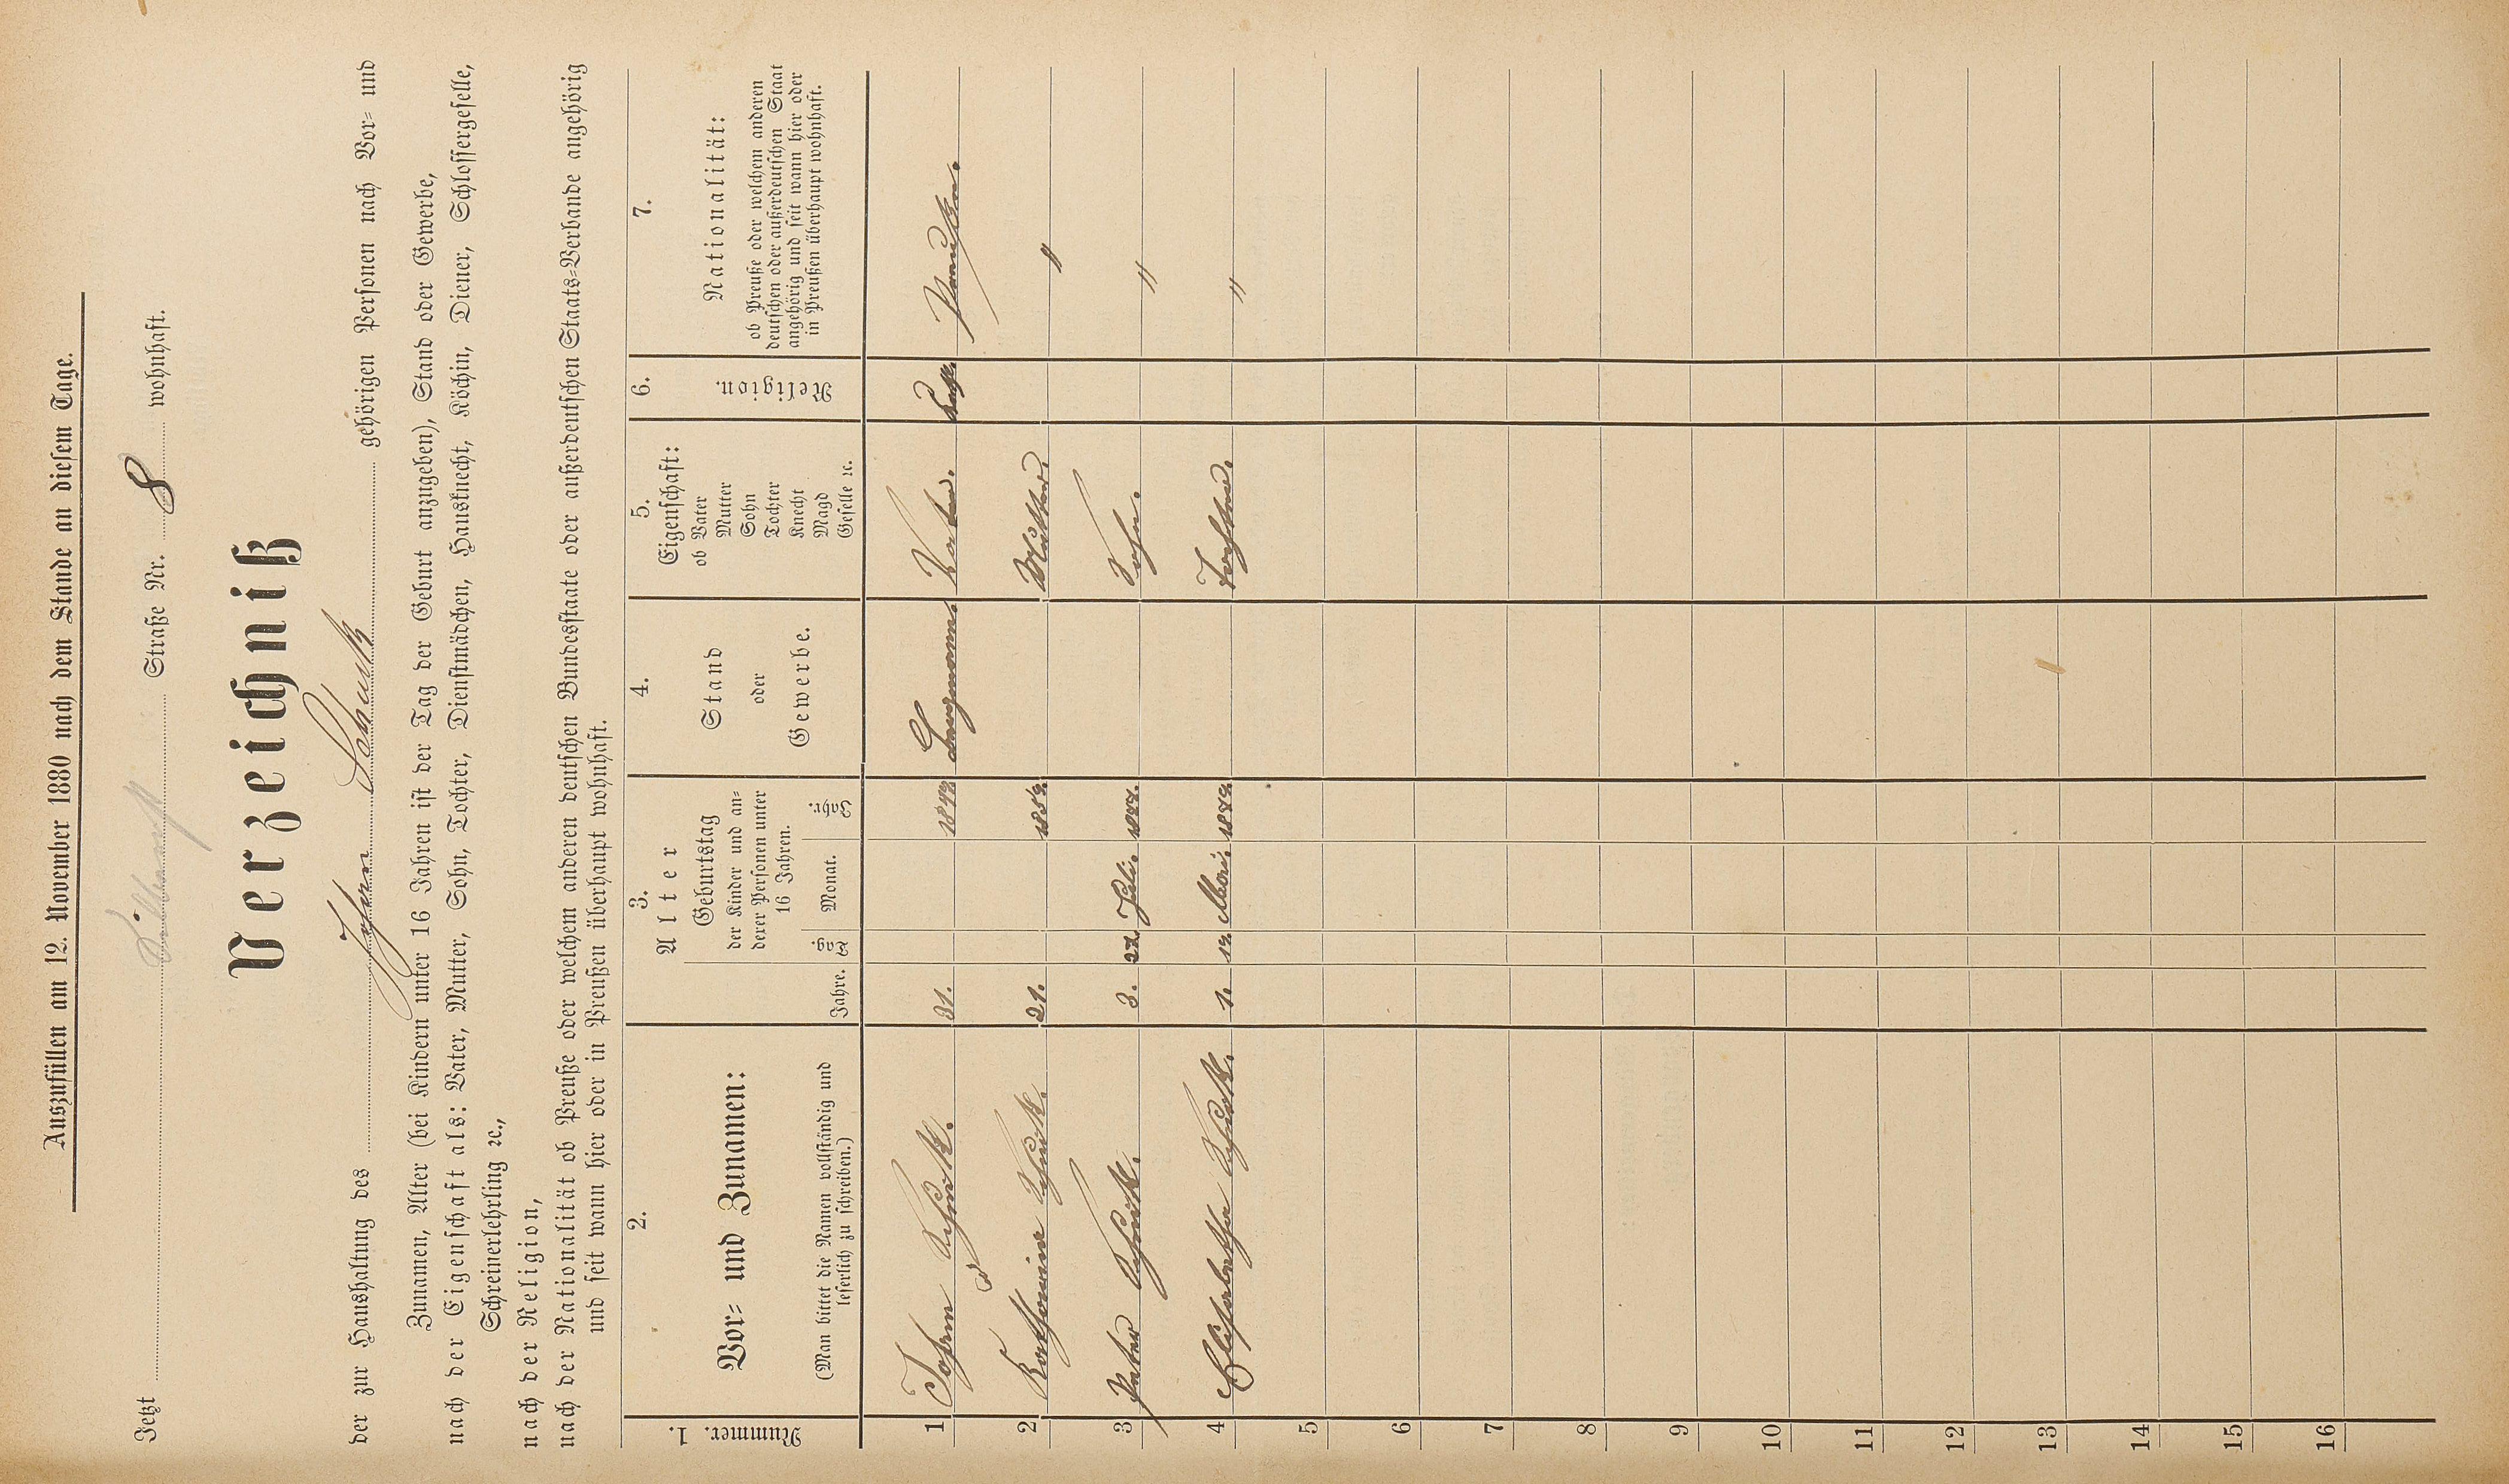 Auszufüllen am 12. November 1880 nach dem Stande an diesem Tage.
Jetzt Straße Nr. 8 wohnhaft.
Verzeichniß
der zur Haushaltung des Johann Schuth gehörigen Personen nach Vor- und
Zunamen, Alter (bei Kindern unter 16 Jahren ist der Tag der Geburt anzugeben), Stand oder Gewerbe,
nach der Eigenschaft als: Vater, Mutter, Sohn, Tochter, Dienstmädchen, Hausknecht, Köchin, Diener, Schlossergeselle,
Schreinerlehrling ꝛc.,
nach der Religion,
nach der Nationalität ob Preuße oder welchem anderen deutschen Bundesstaate oder außerdeutschen Staats-Verbande angehörig
und seit wann hier oder in Preußen überhaupt wohnhaft.
1.
Nummer.
2.
Vor- und Zunamen:
(Man bittet die Namen vollständig und
leserlich zu schreiben.)
3.
Alter
Geburtstag
der Kinder und an-
derer Personen unter
16 Jahren.
Jahre. Tag. Monat. Jahr.
4.
Stand
oder
Gewerbe.
5.
Eigenschaft:
ob Vater
Mutter
Sohn
Tochter
Knecht
Magd
Geselle ꝛc.
6.
Religion.
7.
Nationalität:
ob Preuße oder welchem anderen
deutschen oder außerdeutschen Staat
angehörig und seit wann hier oder
in Preußen überhaupt wohnhaft.
1 Johann Schuth. 31. Bergmann Vater. Kath. Preußen.
2 Katharina Schuth. Mutter. "
3 Peter Schuth. 3. Juli. 1877. Sohn. "
4 Elisabetha Schuth. 1. Mai. 1879. Tochter. "
5
6
7
8
9
10
11
12
13
14
15
16